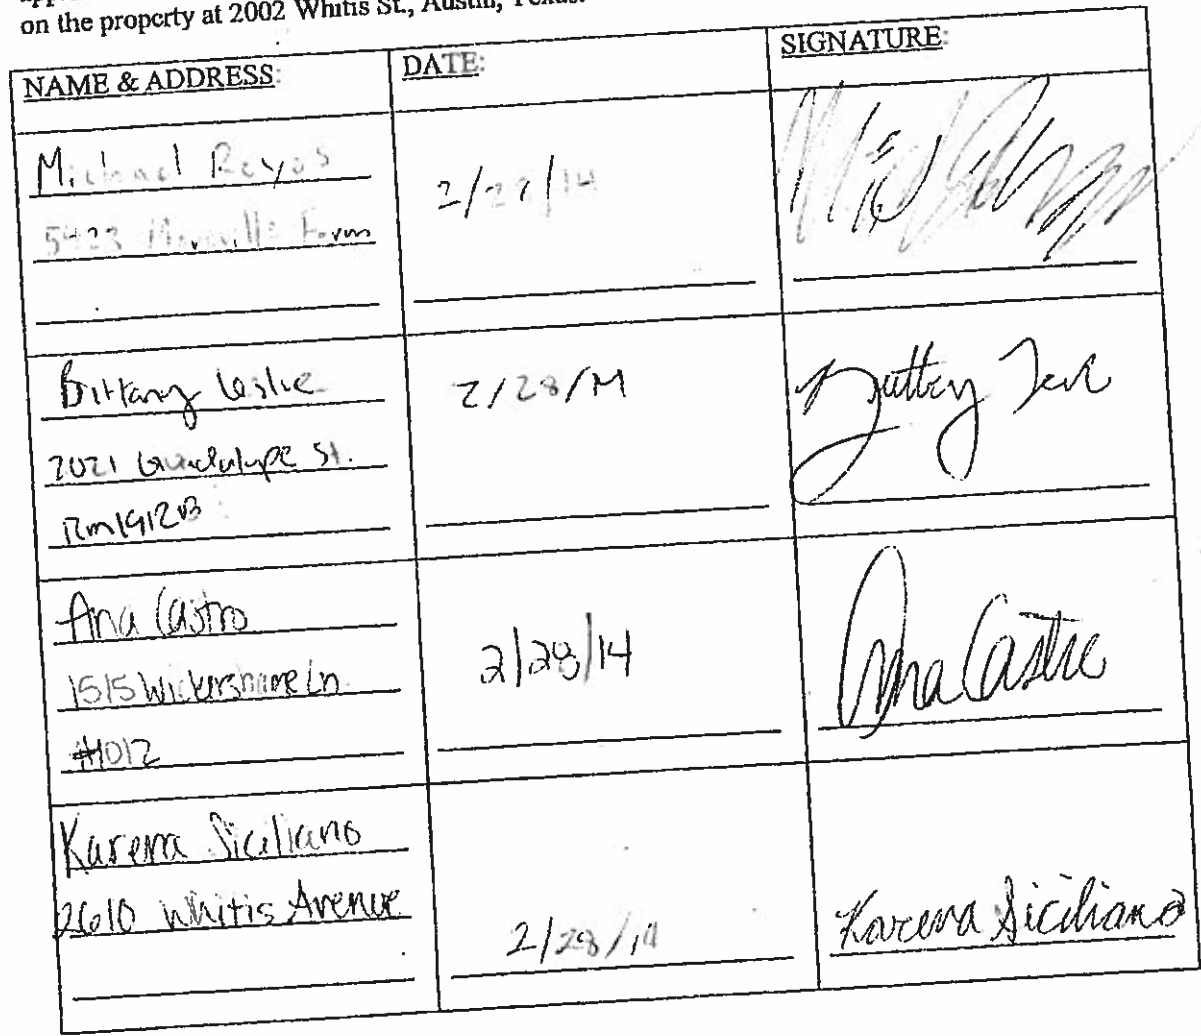 on the property at 2002 Whitis St., Austin, Texas.
NAME & ADDRESS: DATE: SIGNATURE:
Michael Reyes
5423 Farm
2/28/14
Brittany Leslie
2021 Guadalupe St.
Rm1912B
2/28/14
Ana Castro
1515 Wickershame Ln
#1012
2/28/14
Ana Castro
Karena Siciliano
2610 Whitis Avenue
2/28/14
Karena Siciliano